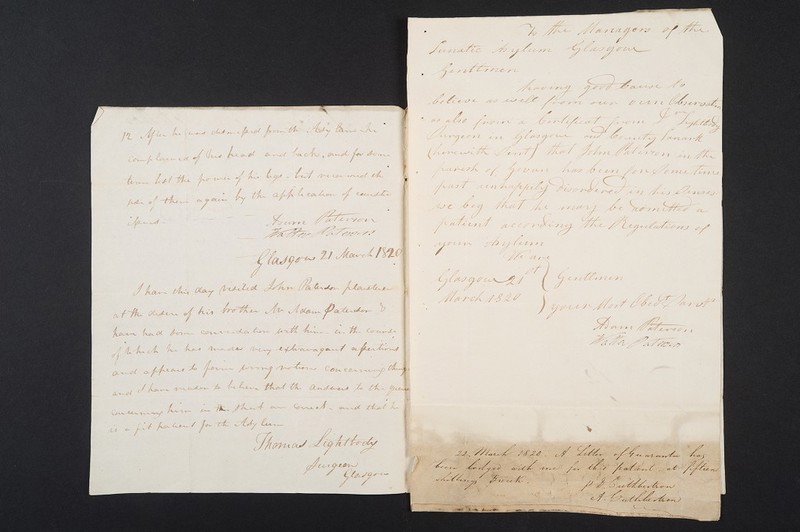 12 After he was dismissed from the Asylum he
complained of his head and back, and for some
time lost the power of his legs, but recovered the
use of them again by the application of
issues.
Adam Paterson
Walter Paterson
Glasgow 21 March 1820
I have this day visited John Paterson plasterer
at the desire of his brother Mr Adam Paterson &
have had some conversation with him in the course
of which he has made very extravagant assertions
and appears to form wrong notions concerning things
and I have reason to believe that the answers to the
concerning him in this sheet are correct. and that he
is a fit patient for the Asylum
Thomas Lightbody
Surgeon
Glasgow
To the Managers of the
Lunatic Asylum Glasgow
Gentlemen
having good Cause to
believe as well from our own Observation
as also from a Certificat from T Lightbody
Surgeon in Glasgow and County Lanark
(herewith Sent) that John Paterson in the
parish of Govan has been for Sometime
past unhappily disordered in his Senses
we beg that he may be admitted a
patient according the Regulations of
your Asylum
We are
Glasgow 21st
March 1820
Gentlemen
your Most Obedt Servts
Adam Paterson
Walter Paterson
22 March 1820. A Letter of Guarantee has
been lodged with me for this patient at fifteen
shillings Week
A. Cuthbertson